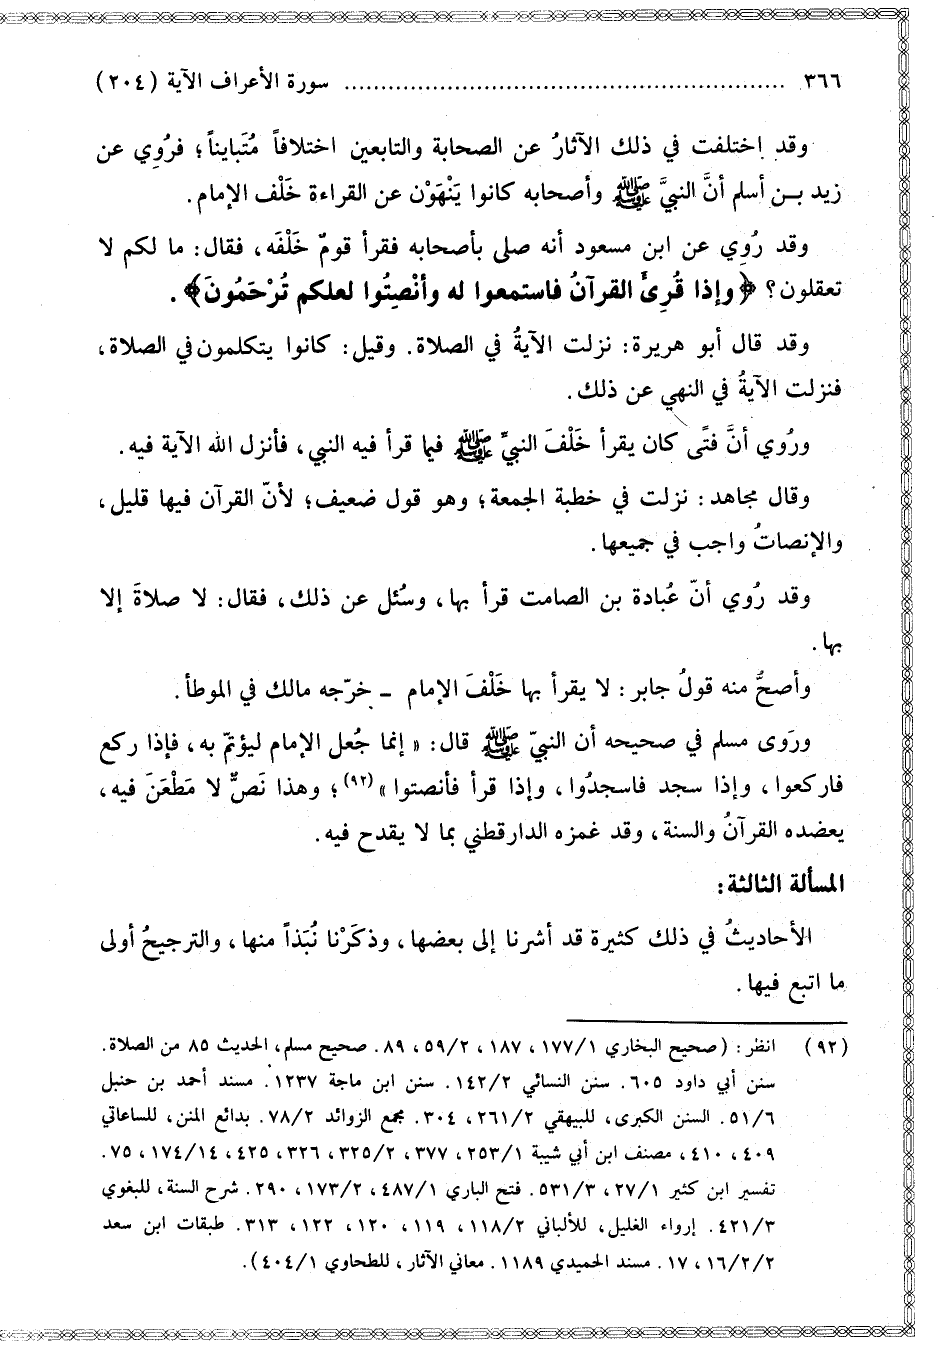 ٣٦٦ ............................................................ سورة الأعراف الآية (٢٠٤)
وقد اختلفت في ذلك الآثارُ عن الصحابة والتابعين اختلافاً مُتَبايناً؛ فرُوِي عن
زيد بـن أسلم أنَّ النبيَّ ﷺ وأصحابه كانوا يَنْهَوْن عن القراءة خَلْف الإمام.
وقد رُوِي عن ابن مسعود أنه صلى بأصحابه فقرأ قومٌ خَلْفَه، فقال: ما لكم لا
تعقلون؟ ﴿وإذا قُرِئَ القرآنُ فاستمعوا له وأنْصِتُوا لعلكم تُرْحَمُونَ﴾.
وقد قال أبو هريرة: نزلت الآيةُ في الصلاة. وقيل: كانوا يتكلمون في الصلاة،
فنزلت الآيةُ في النهي عن ذلك.
ورُوي أنَّ فتًى كان يقرأ خَلْفَ النبيِّ ﷺ فيما قرأ فيه النبي، فأنزل الله الآية فيه.
وقال مجاهد: نزلت في خطبة الجمعة؛ وهو قول ضعيف؛ لأنّ القرآن فيها قليل،
والإنصاتُ واجب في جميعها.
وقد رُوي أنّ عُبادة بن الصامت قرأ بها، وسُئل عن ذلك، فقال: لا صلاةَ إلا
بها.
وأصحُّ منه قولُ جابر: لا يقرأ بها خَلْفَ الإمام - خرّجه مالك في الموطأ.
ورَوى مسلم في صحيحه أن النبيّ ﷺ قال: « إنما جُعل الإمام ليؤتمّ به، فإذا ركع
فاركعوا، وإذا سجد فاسجدُوا، وإذا قرأ فأنصتوا »(٩٢)؛ وهذا نَصٌّ لا مَطْعَنَ فيه،
يعضده القرآنُ والسنة، وقد غمزه الدارقطني بما لا يقدح فيه.
المسألة الثالثة:
الأحاديثُ في ذلك كثيرة قد أشرنا إلى بعضها، وذكَرْنا نُبَذاً منها، والترجيحُ أولى
ما اتبع فيها.
(٩٢) انظر: (صحيح البخاري ١٧٧/١، ١٨٧، ٥٩/٢، ٨٩. صحيح مسلم، الحديث ٨٥ من الصلاة.
سنن أبي داود ٦٠٥. سنن النسائي ١٤٢/٢. سنن ابن ماجة ١٢٣٧. مسند أحمد بن حنبل
٥١/٦. السنن الكبرى، للبيهقي ٢٦١/٢، ٣٠٤. مجمع الزوائد ٧٨/٢. بدائع المنن، للساعاتي
٤٠٩، ٤١٠، مصنف ابن أبي شيبة ٢٥٣/١، ٣٧٧، ٣٢٥/٢، ٣٢٦، ٤٢٥، ١٧٤/١٤، ٧٥.
تفسير ابن كثير ٢٧/١، ٥٣١/٣. فتح الباري ٤٨٧/١، ١٧٣/٢، ٢٩٠. شرح السنة، للبغوي
٤٢١/٣. إرواء الغليل، للألباني ١١٨/٢، ١١٩، ١٢٠، ١٢٢، ٣١٣. طبقات ابن سعد
١٦/٢/٢، ١٧. مسند الحميدي ١١٨٩. معاني الآثار، للطحاوي ٤٠٤/١).